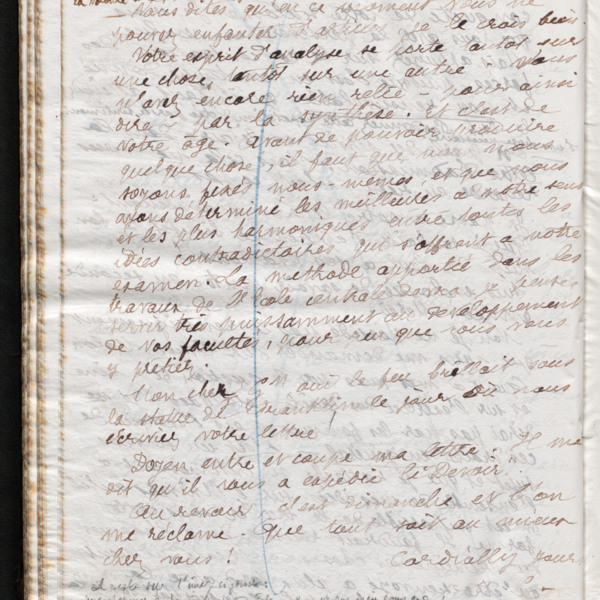 Vous dites qu'en ce moment vous ne
pouvez enfanter d'art, je le crois bien.
Votre esprit d'analyse se porte tantôt sur
une chose, tantôt sur une autre : vous
n'avez encore rien relié - pour ainsi
dire - par la synthèse. et c'est de
votre âge. avant de pouvoir produire
quelque chose, il faut que nous nous
soyons fixés nous-mêmes et que nous
ayons déterminé les meilleures à notre sens
et les plus harmoniques entre toutes les
idées contradictoires qui s'offrent à notre
examen. La methode apportée dans les
travaux de l'Ecole centrale devra, je pense
servir très puissamment au développement
de vos facultés, pour vu que vous vous
y prêtiez.
Mon cher, oui le feu brûlait sous
la statue de Franklin le jour où vous
écriviez votre lettre!
Dozen entre et coupe ma lettre. Il me
dit qu'il vous a expédié le Devoir.
Au revoir, c'est dimanche et l'on
me réclame. Que tout soit au mieux
chez vous!
Cordially your
il reste sur